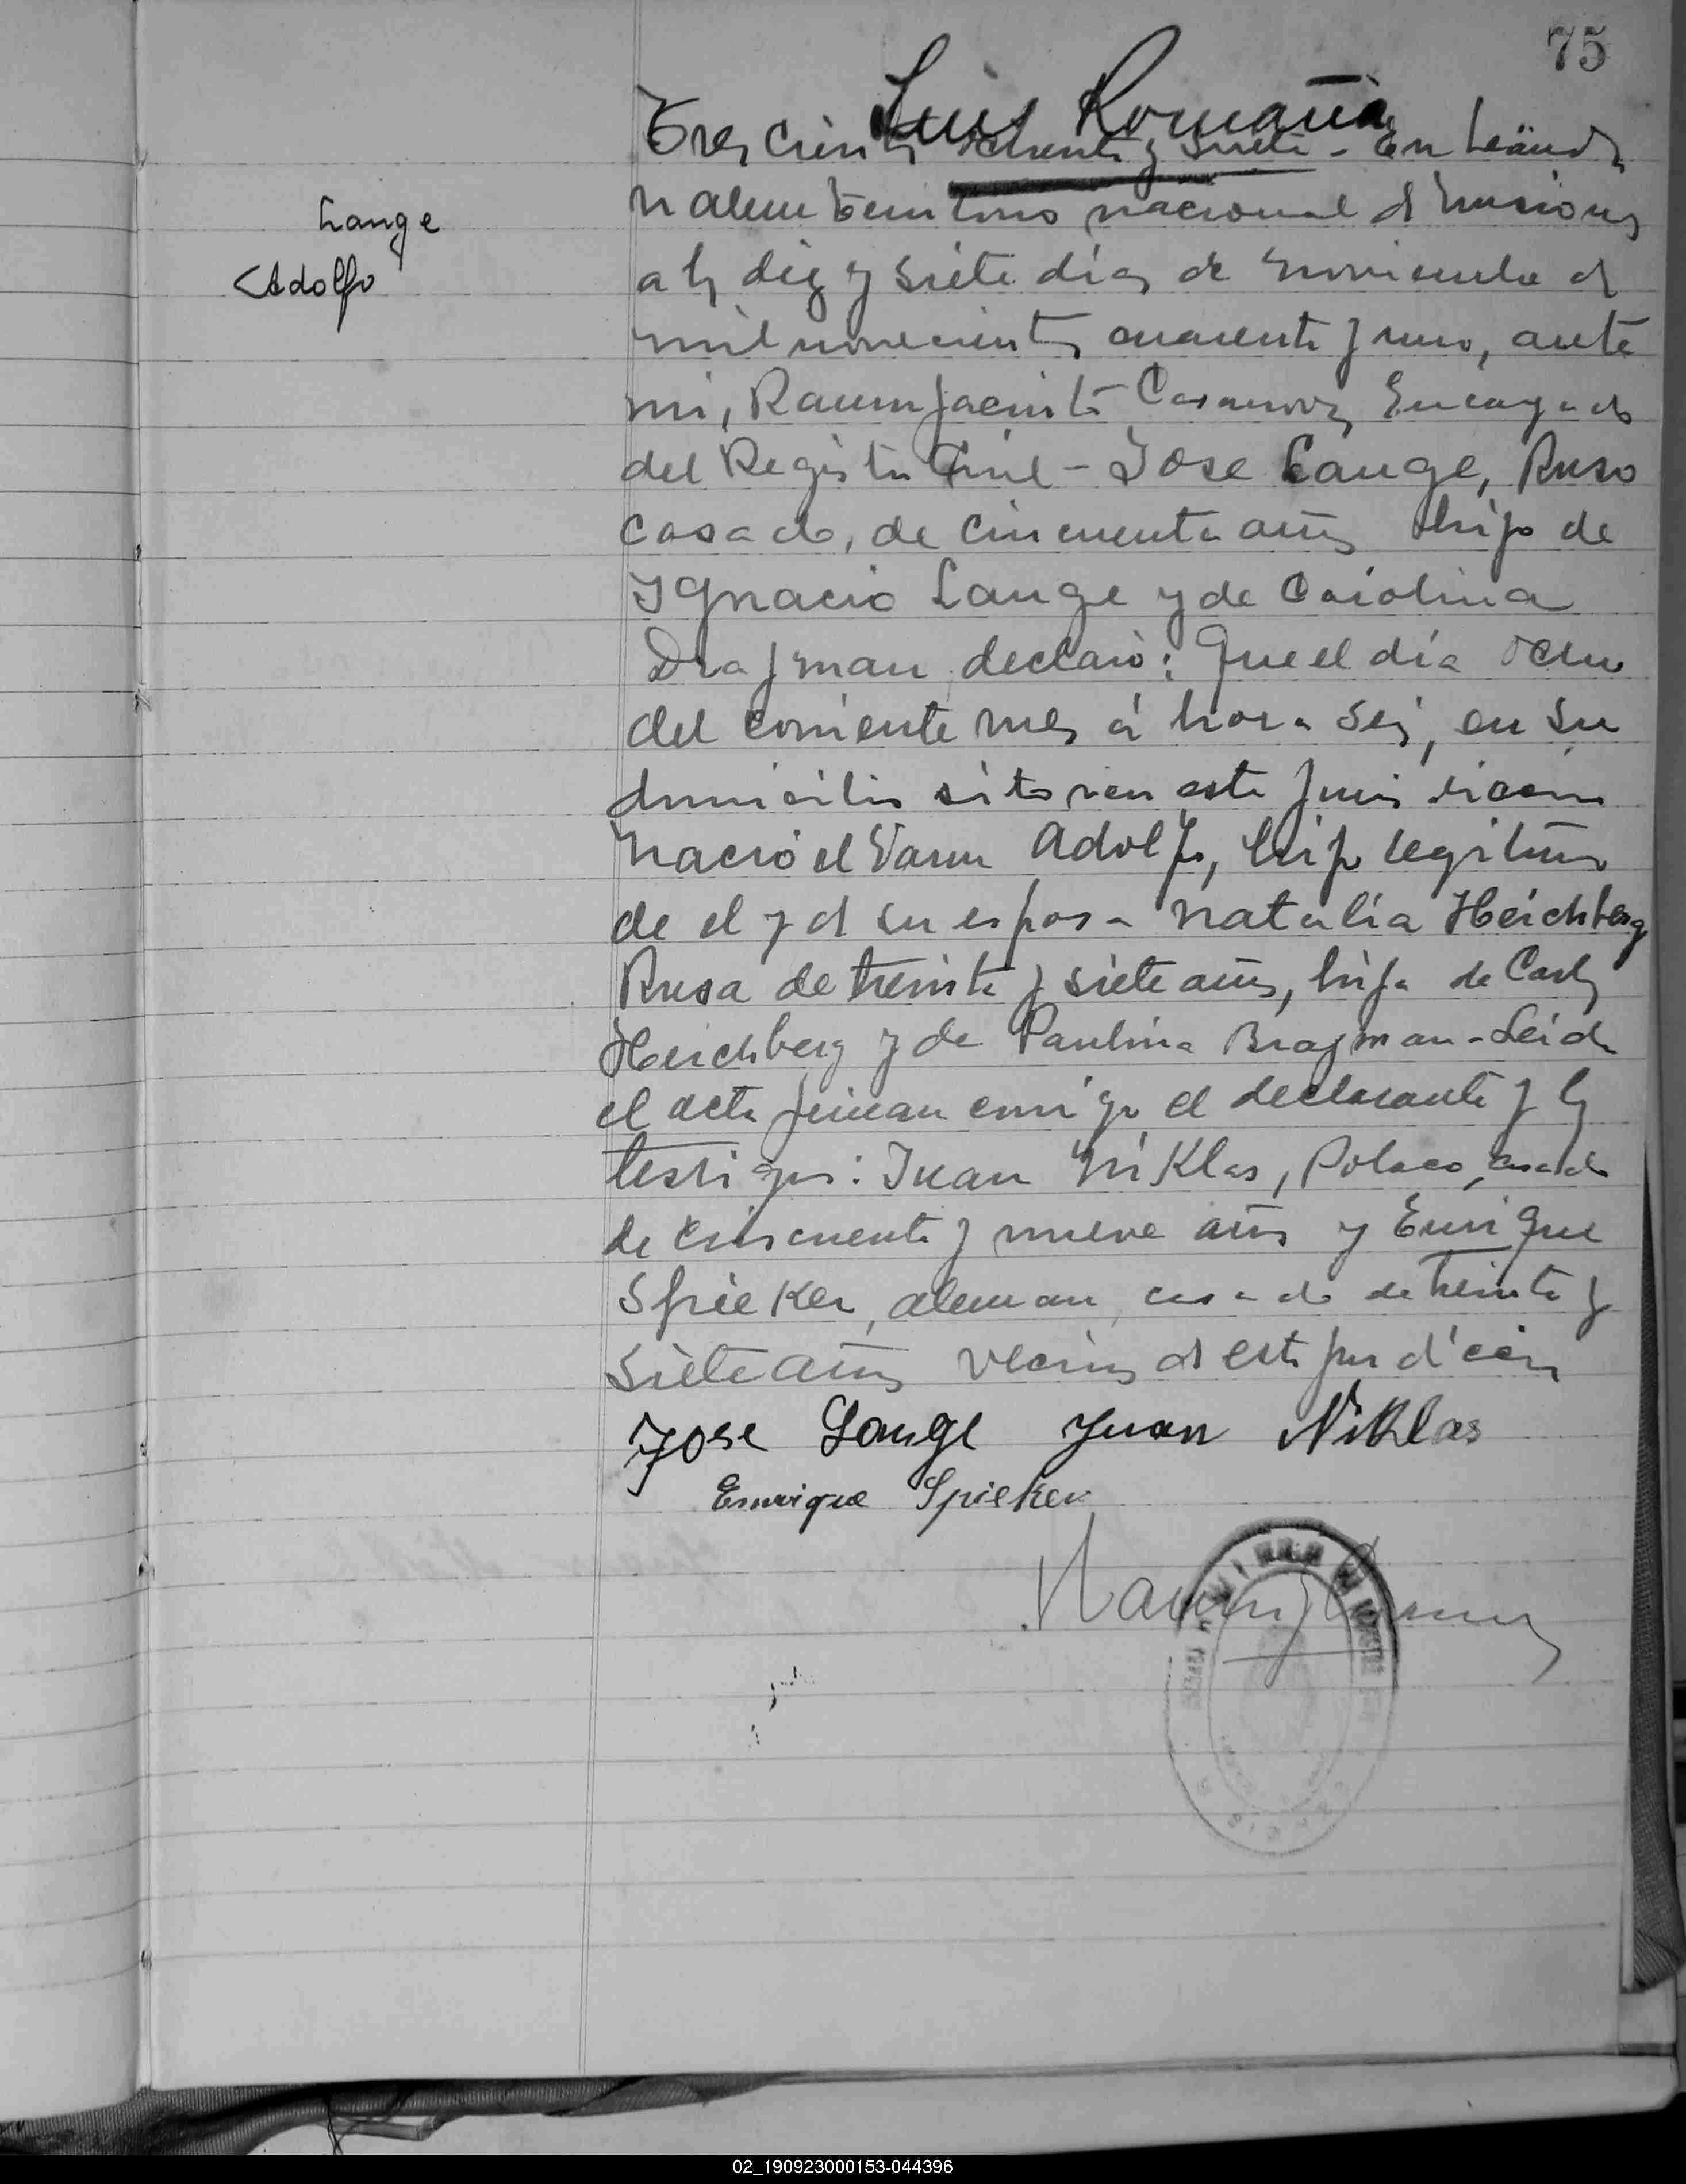 75
Luis Romaña
Trescientos ochenta y siete - En Leandro
N alem territorio nacional de Misiones
a los diez y siete días de noviembre de
mil novecientos cuarenta y uno, ante
mi, Ramon Jacinto Casanova Encargado
del Registro Civil - Jose Lange, Ruso
casado, de cincuenta años hijo de
Ignacio Lange y de Carolina
declaró: Que el día ocho
del corriente mes á hora seis, en su
domicilio sito en esta jurisdiccion
nació el Varon Adolfo, hijo legitimo
de el y de su esposa Natalia Heichberg
Rusa de treinta y siete años, hija de Carlos
Heichberg y de Paulina Bragman - Leida
el acta firman conmigo el declarante y los
testigos: Juan Niklas, Polaco, casado
de cincuenta y nueve años y Enrique
Spieker, aleman, casado de treinta y
siete años vecinos de esta jurisdiccion
Lange
Adolfo
Jose Lange Juan Niklas
Enrique Spieker
02_190923000153-044396